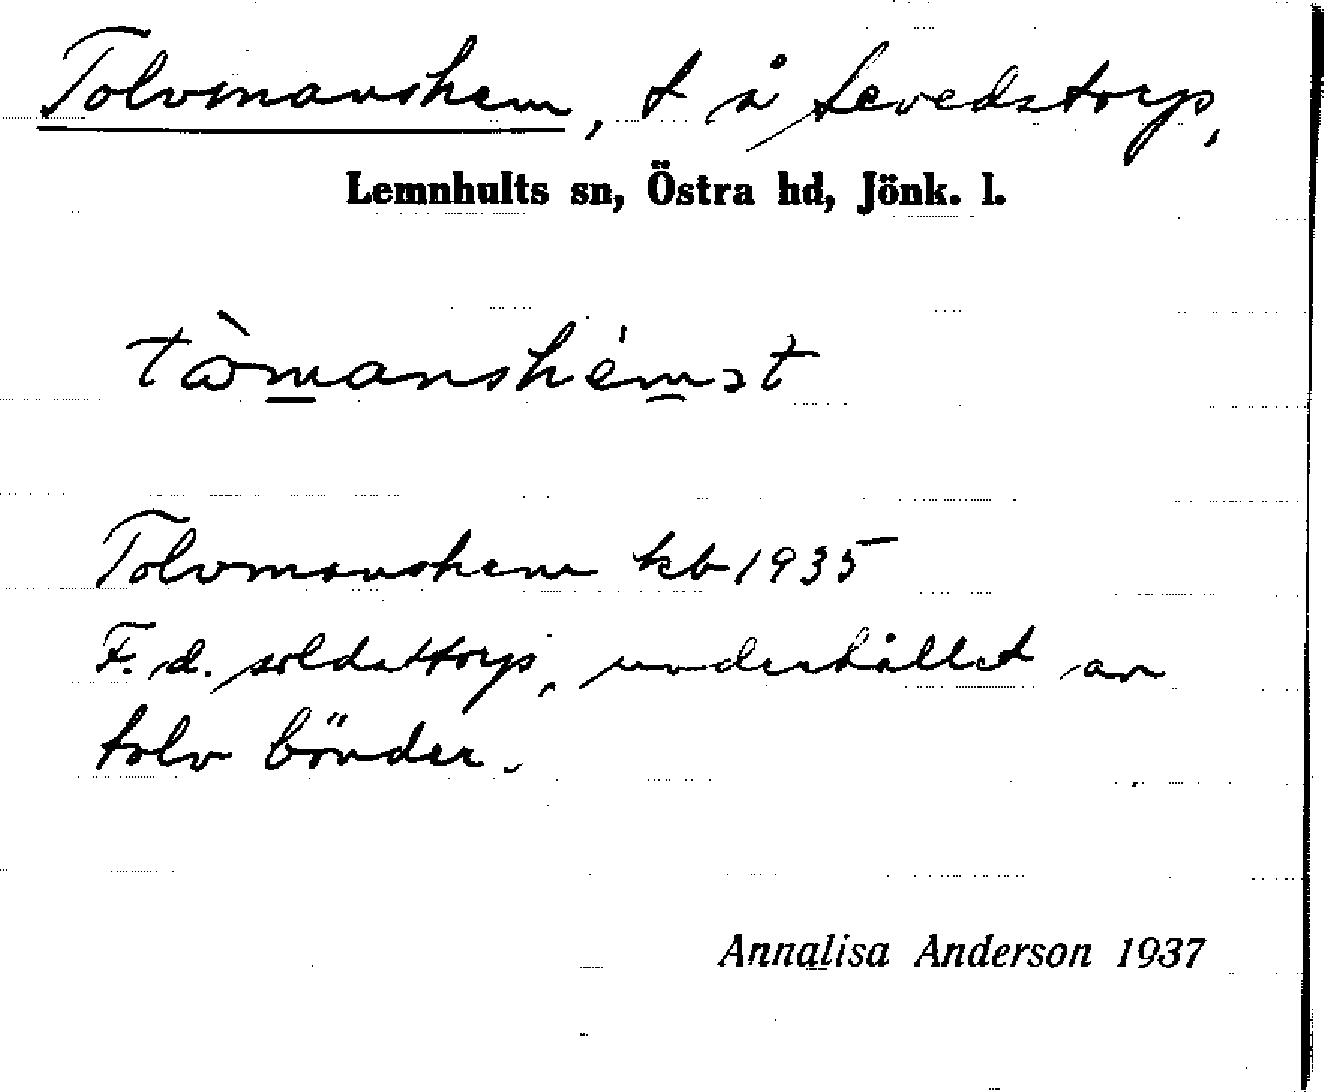 Tolvmanshem, t å Sevedstorp,
Lemnhults sn, Östra hd, Jönk. l.
Tolvmanshem kb 1935
F. d. soldattorp, underhållet av
tolv bönder.
Annalisa Anderson 1937